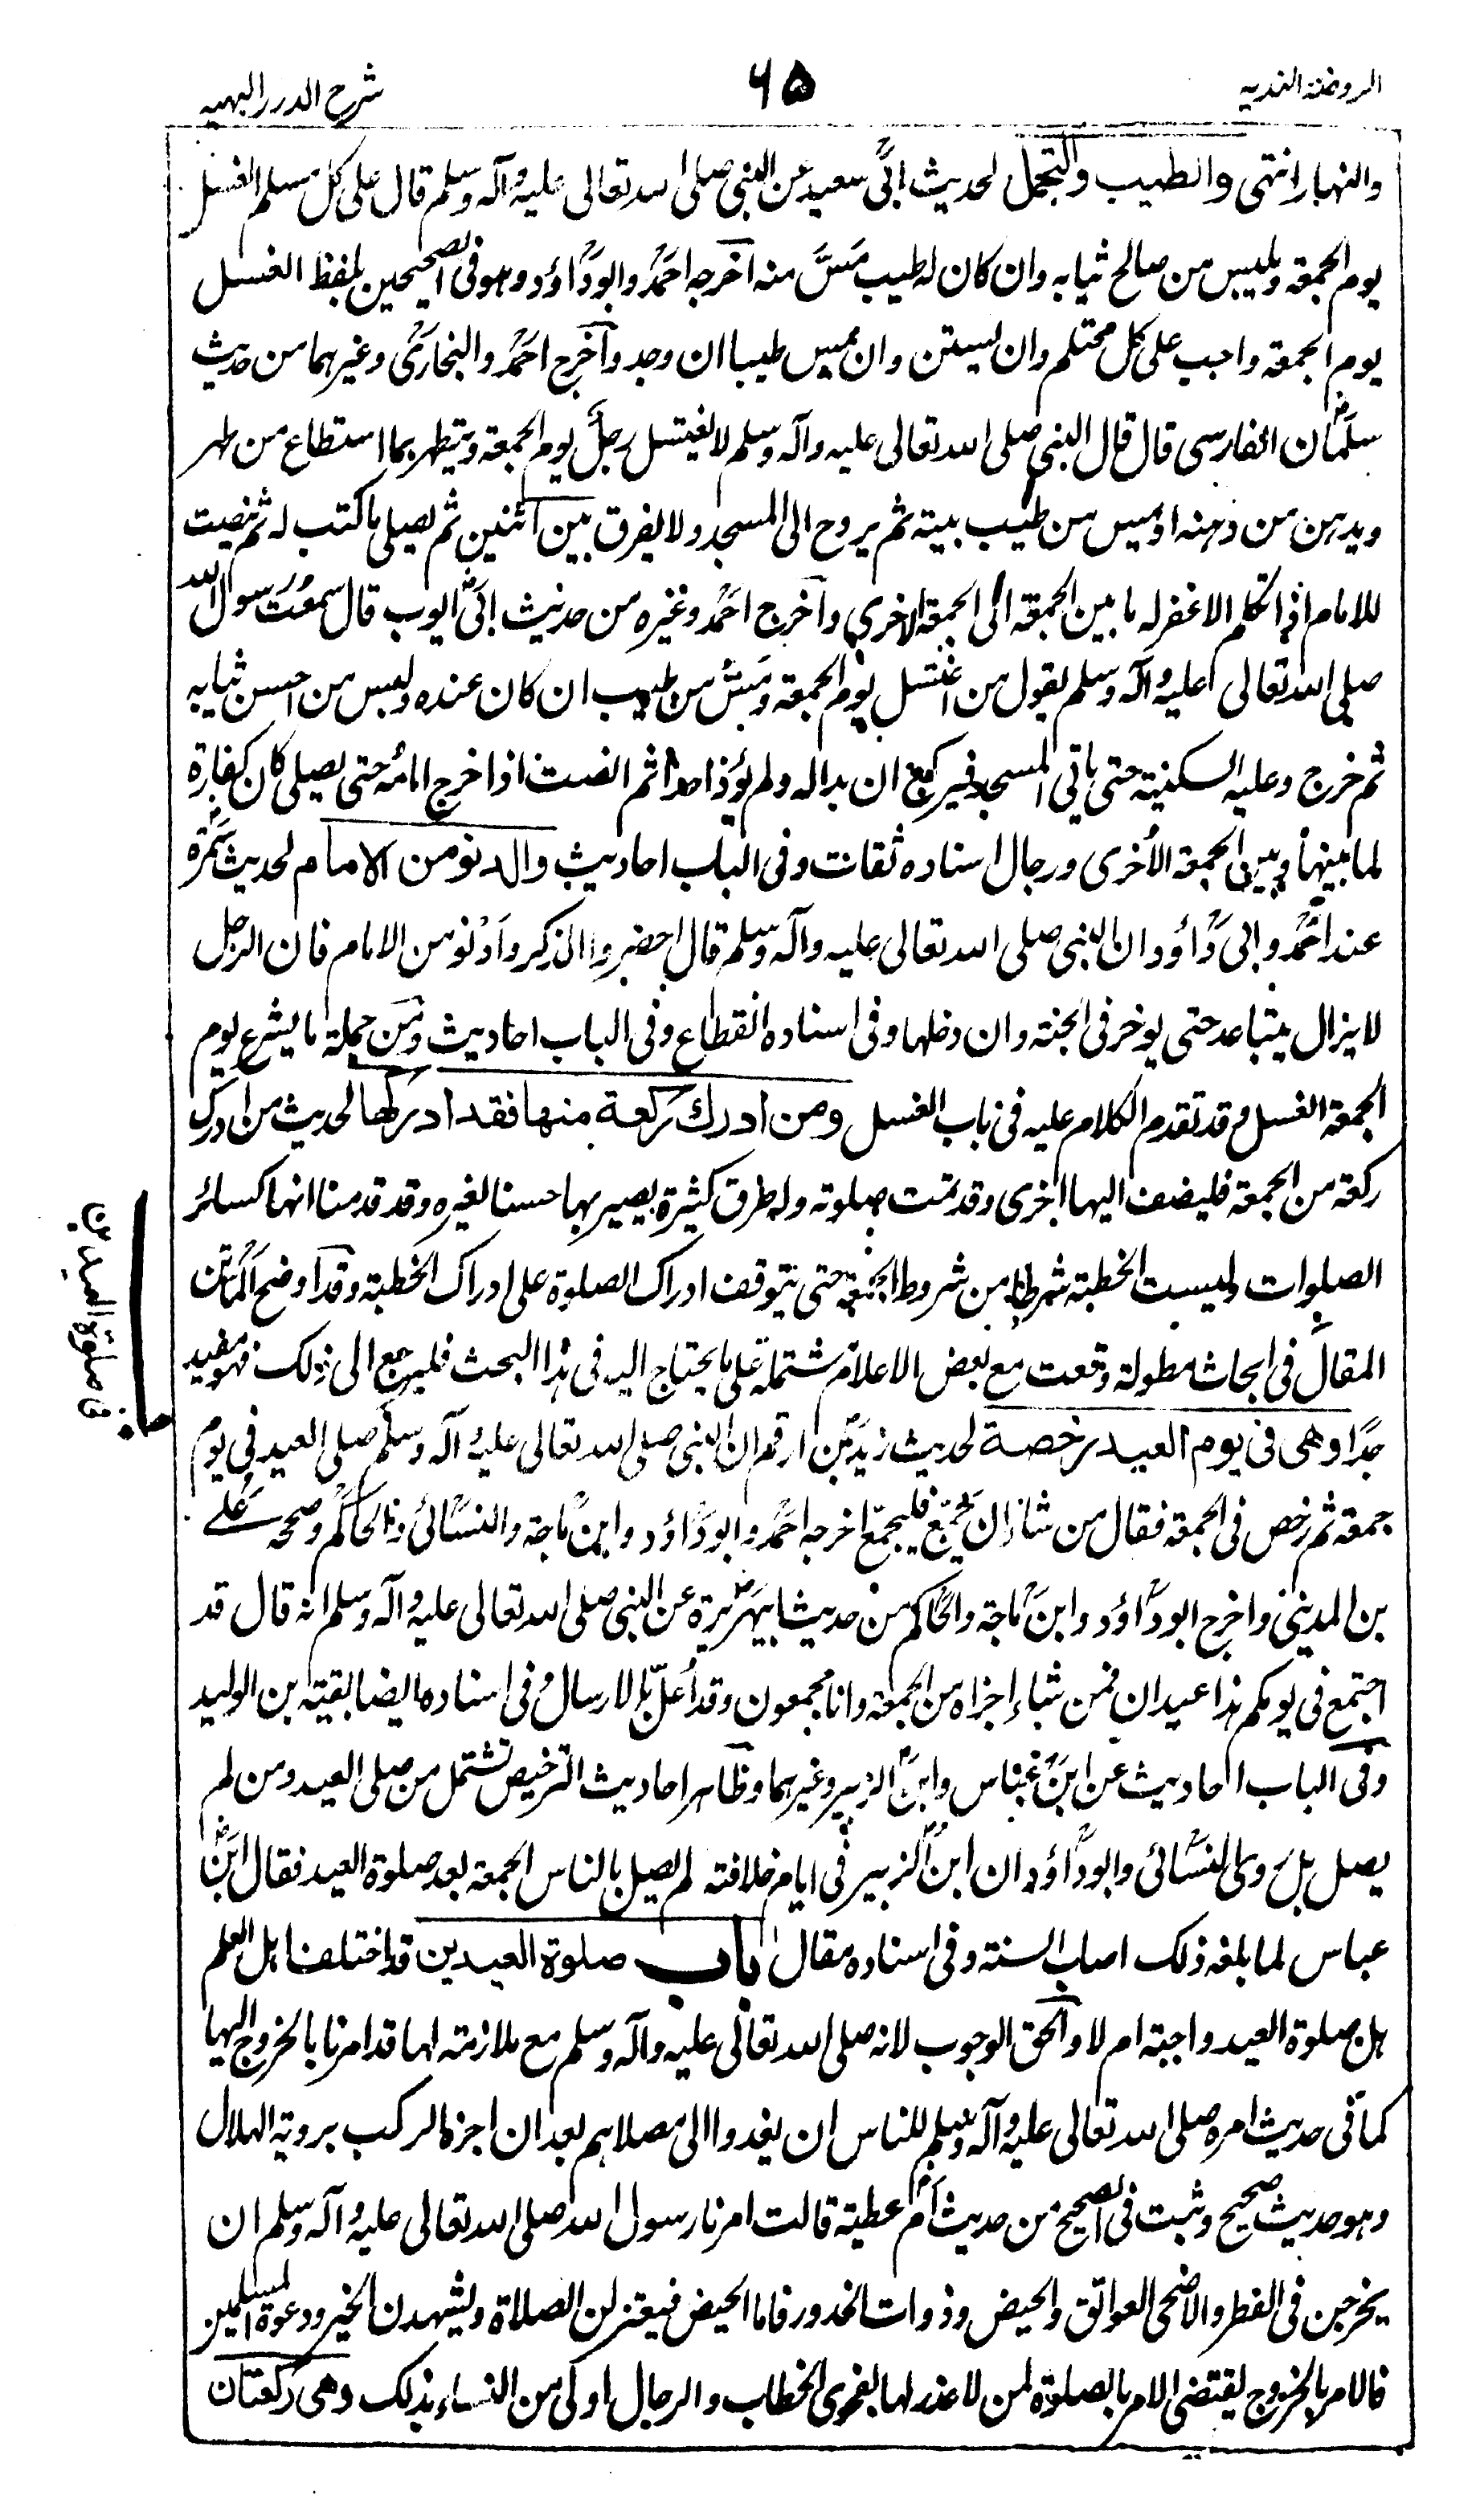 الروضة الندیه
۶۵
شرح الدرر البهیه
والنهار انتهى والطيب والتجمل لحديث ابى سعيد عن النبى صلى الله تعالى عليه وآله وسلم قال على كل مسلم الغسل
يوم الجمعة ويلبس من صالح ثيابه وان كان له طيب مس منه اخرجه احمد وابو داؤد وهو فى الصحيحين بلفظ الغسل
يوم الجمعة واجب على كل محتلم وان يستن وان يمس طيبا ان وجد وأخرج احمد والبخارى وغيرهما من حديث
سلمان الفارسى قال قال النبى صلى الله تعالى عليه وآله وسلم لا يغتسل رجل يوم الجمعة ويتطهر بما استطاع من طهر
ويدهن من دهنه او يمس من طيب بيته ثم يروح الى المسجد ولا يفرق بين اثنين ثم يصلى ما كتب له ثم ينصت
للامام اذا تكلم الا غفر له ما بين الجمعة الى الجمعة الاخرى وأخرج احمد وغيره من حديث ابى ايوب قال سمعت رسول الله
صلى الله تعالى عليه وآله وسلم يقول من اغتسل يوم الجمعة ومس من طيب ان كان عنده ولبس من احسن ثيابه
ثم خرج وعليه السكينة حتى ياتى المسجد فيركع ان بدا له ولم يؤذ احدا ثم انصت اذا خرج امامه حتى يصلى كان كفارة
لما بينها وبين الجمعة الأخرى ورجال اسناده ثقات وفى الباب احاديث والدنو من الامام لحديث سمرة
عند احمد وابى داؤد ان النبى صلى الله تعالى عليه وآله وسلم قال احضروا الذكر وادنو من الامام فان الرجل
لا يزال يتباعد حتى يوخر فى الجنة وان دخلها وفى اسناده انقطاع وفى الباب احاديث ومن جملة ما يشرع يوم
الجمعة الغسل وقد تقدم الكلام عليه فى باب الغسل ومن ادرك ركعة منها فقد ادركها لحديث من ادرك
ركعة من الجمعة فليضف اليها اخرى وقد تمت صلوته وله طرق كثيرة يصير بها حسنا لغيره وقد قدمنا انها كسائر
الصلوات وليست الخطبة شرطا من شروط الجمعة حتى يتوقف ادراك الصلوة على ادراك الخطبة وقد اوضح الماتن
المقال فى ابحاث مطولة وقعت مع بعض الاعلام مشتملة على ما يحتاج اليه فى هذا البحث فليرجع الى ذلك فهو مفيد
جدا وهى فى يوم العيد رخصة لحديث زيد بن ارقم ان النبى صلى الله تعالى عليه وآله وسلم صلى العيد فى يوم
جمعة ثم رخص فى الجمعة فقال من شاء ان يجمع فليجمع اخرجه احمد وابو داؤد وابن ماجة والنسائى والحاكم وصححه على
بن المدينى واخرج ابو داؤد وابن ماجة والحاكم من حديث ابيهريرة عن النبى صلى الله تعالى عليه وآله وسلم انه قال قد
اجتمع فى يومكم هذا عيدان فمن شاء اجزاه من الجمعة وانا مجمعون وقد أعل بالارسال وفى اسناده ايضا بقية بن الوليد
وفى الباب احاديث عن ابن عباس وابن الزبير وغيرهما وظاهر احاديث الترخيص تشتمل من صلى العيد ومن لم
يصل بل روى النسائى وابو داؤد ان ابن الزبير فى ايام خلافته لم يصل بالناس الجمعة بعد صلوة العيد فقال ابن
عباس لما بلغه ذلك اصاب السنة وفى اسناده مقال باب صلوة العيدين قد اختلف اهل العلم
هل صلوة العيد واجبة ام لا والحق الوجوب لانه صلى الله تعالى عليه وآله وسلم مع ملازمته لها قد امرنا بالخروج اليها
كما فى حديث امره صلى الله تعالى عليه وآله وسلم للناس ان يغدوا الى مصلاهم بعد ان اخبره الركب بروية الهلال
وهو حديث صحيح وثبت فى الصحيح من حديث ام عطية قالت امرنا رسول الله صلى الله تعالى عليه وآله وسلم ان
يخرجن فى الفطر والاضحى العواتق والحيض وذوات الخدور فاما الحيض فيعتزلن الصلاة ويشهدن الخير ودعوة المسلمين
فالامر بالخروج يقتضى الامر بالصلوة لمن لا عذر لها بفحوى الخطاب والرجال اولى من النساء بذلك وهى ركعتان
ف صلوة العيدين